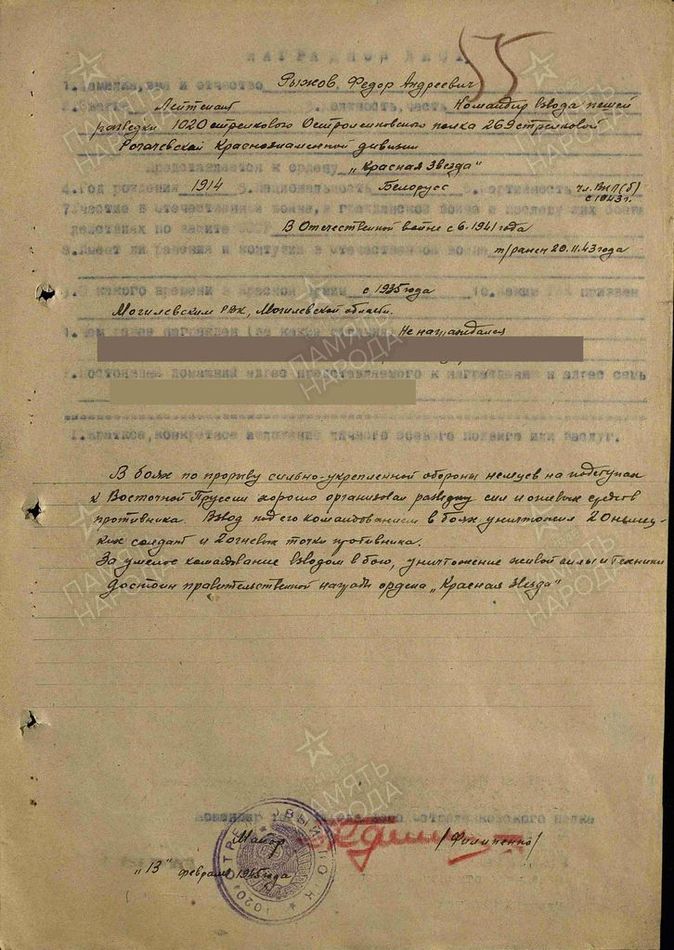 НАГРАДНОЙ ЛИСТ
55
1. Фамилия, имя и отчество Рыжов, Федор Андреевич
2. Звание Лейтенант 3. Должность, часть Командир взвода пешей
разведки 1020 стрелкового Остроленковского полка 269 стрелковой
Рогачевской Краснознаменной дивизии
Представляется к ордену „Красная Звезда"
4. Год рождения 1914 5. Национальность Белорус 6. Партийность чл. ВКП(б)
с 1943 г.
7. Участие в отечественной войне, в гражданской войне и последующих боевых
действиях по защите СССР
В Отечественной войне с 6.1941 года
8. Имеет ли ранения и контузии в отечественной войне т/ранен 20.11.43 года
9. С какого времени в Красной Армии с 1935 года 10. Каким РВК призван
Могилевским РВК, Могилевской области.
11. Чем ранее награжден (за какие отличия) Не награждался
12. Постоянный домашний адрес представляемого к награждению и адрес семьи
1. Краткое, конкретное изложение личного боевого подвига или заслуг.
В боях по прорыву сильно-укрепленной обороны немцев на подступах
к Восточной Пруссии хорошо организовал разведку сил и огневых средств
противника. Взвод под его командованием в боях уничтожил 20 немец-
ких солдат и 2 огневые точки противника.
За умелое командование взводом в бою, уничтожение живой силы и техники
достоин правительственной награды ордена „Красная Звезда"
Командир 1020 Остроленковского полка
Майор /Филипенко/
„13" февраля 1945 года
1020 СТРЕЛКОВЫЙ ПОЛК
ПАМЯТЬ
НАРОДА